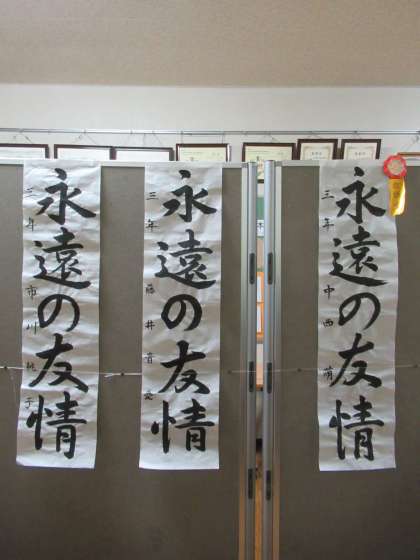 永遠の友情
三年 中西萌
永遠の友情
三年 藤井音愛
永遠の友情
三年 市川桃子